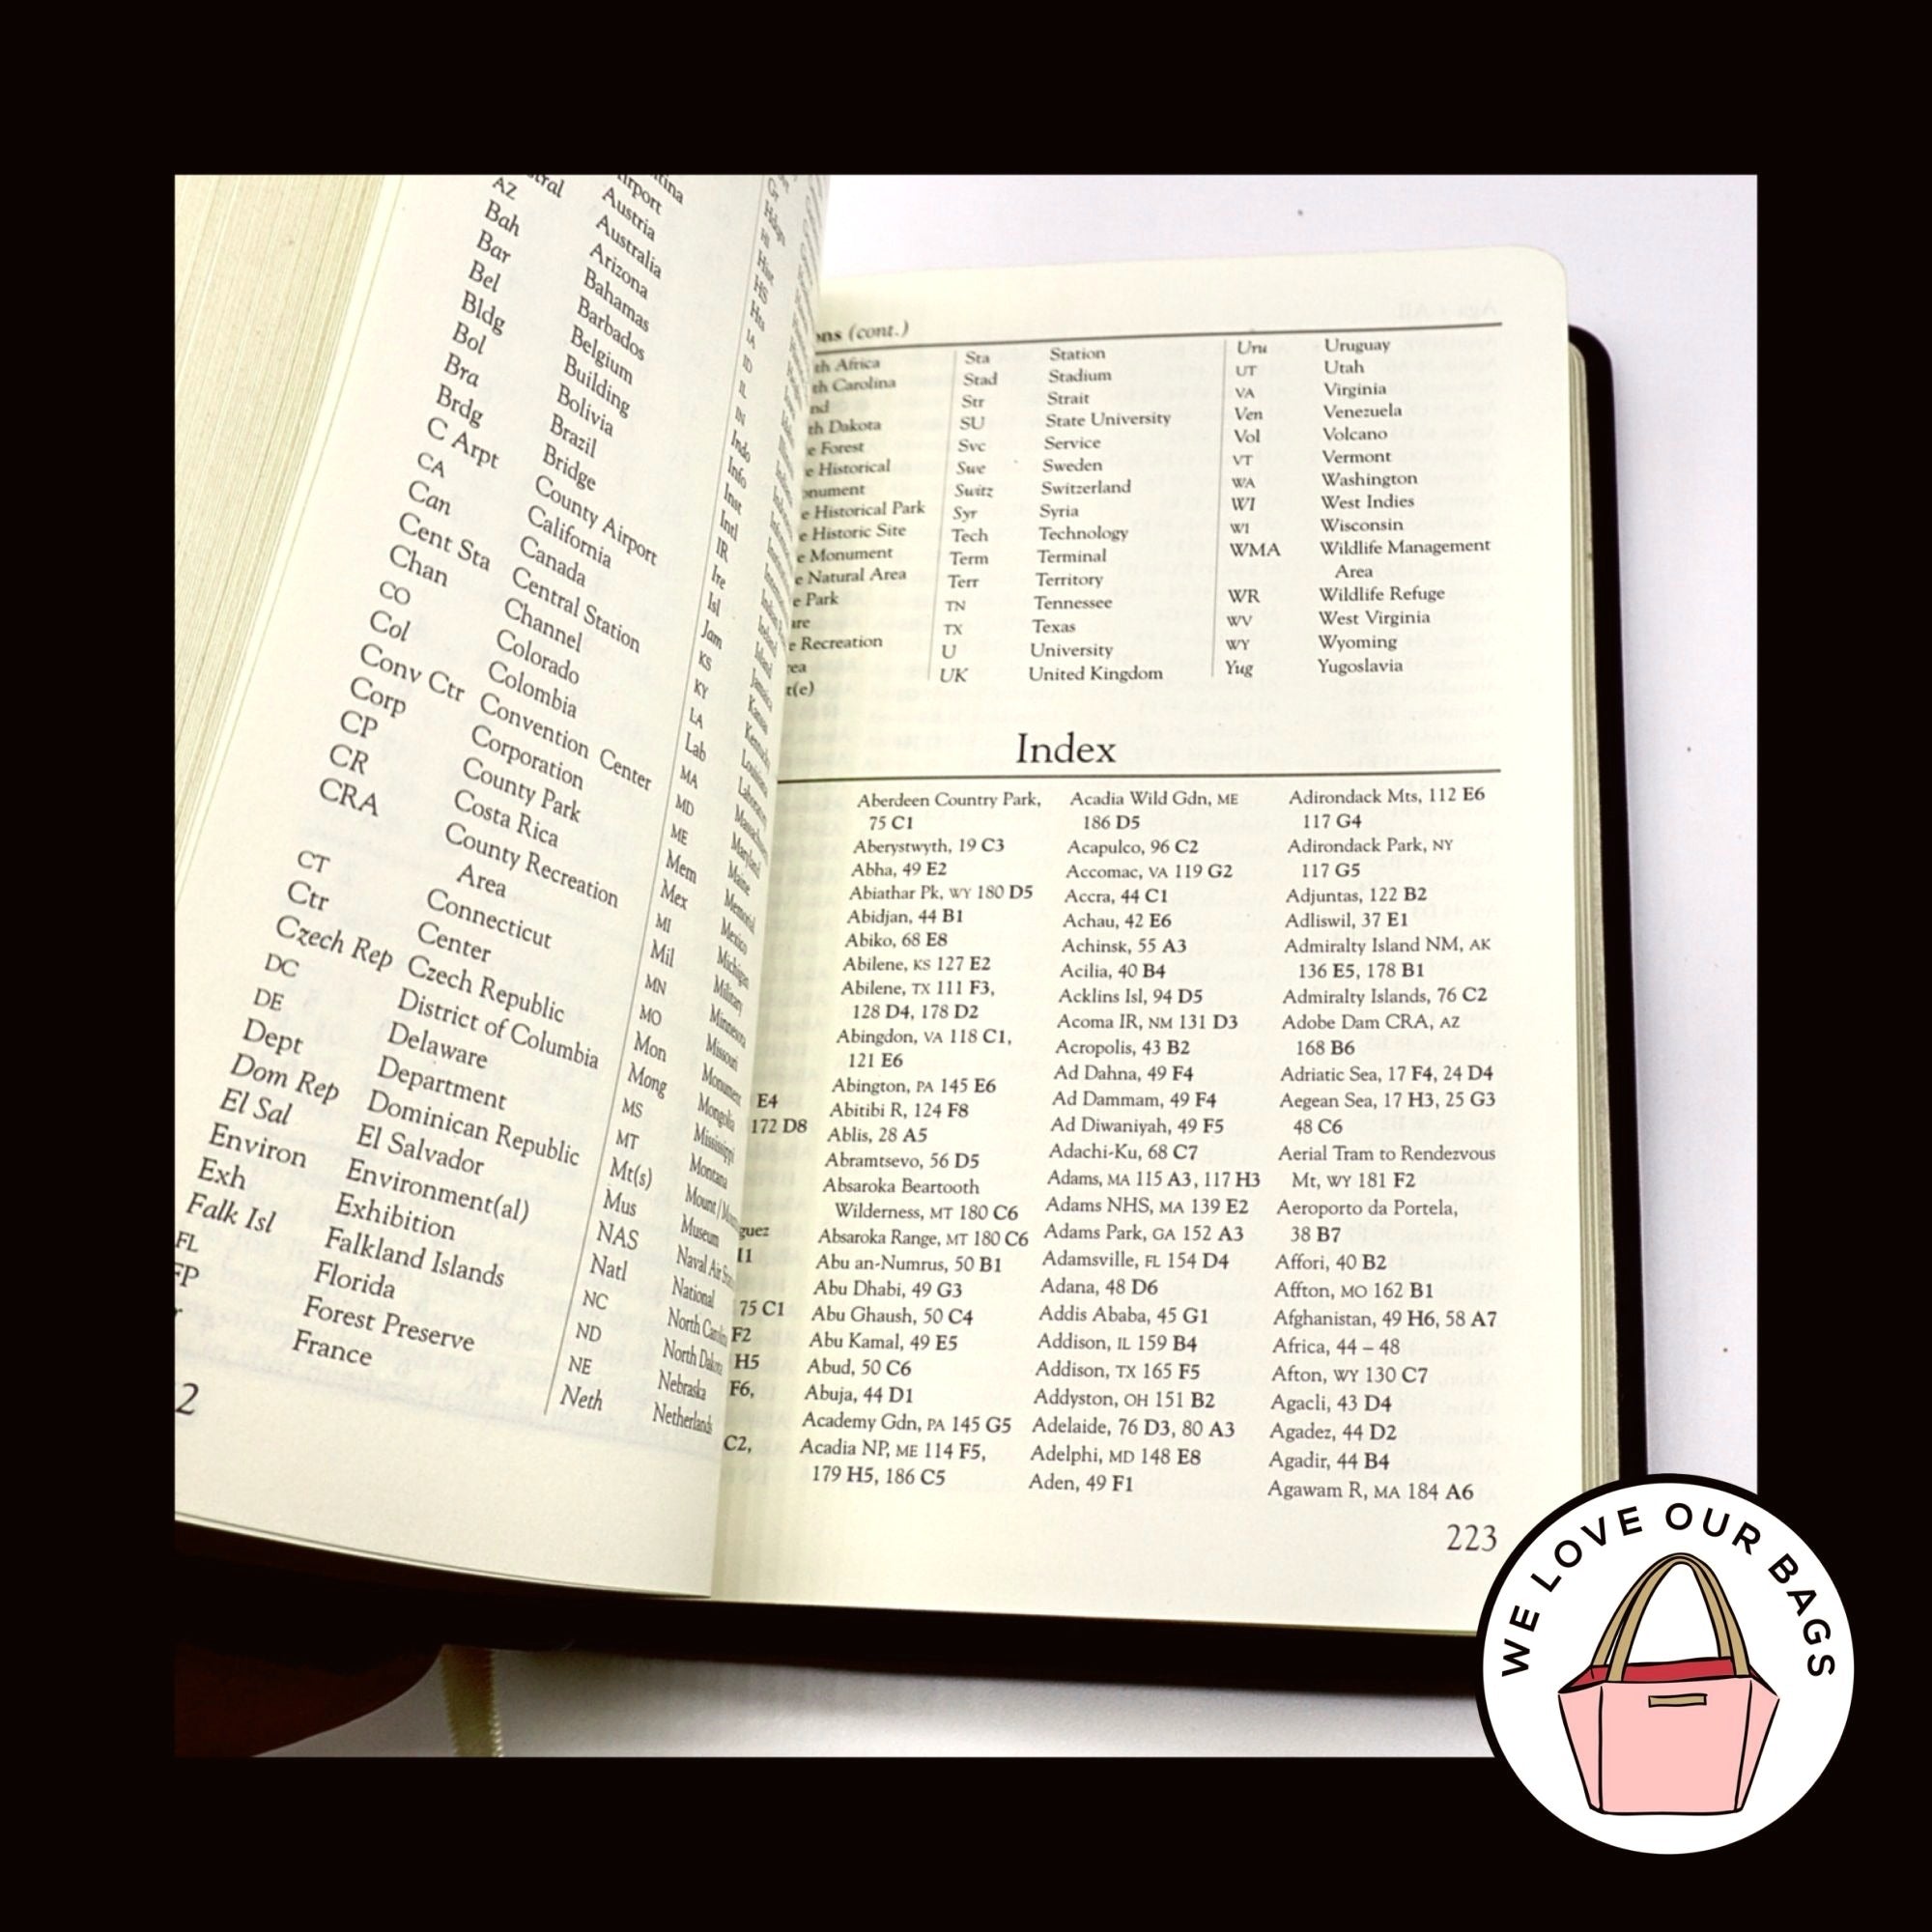 tral
AZ
Bah
Bar
Bel
Bldg
Bol
Bra
Brdg
C Arpt
CA
Can
Cent Sta
Chan
CO
Col
Conv Ctr
Corp
CP
CR
CRA
CT
Ctr
Czech Rep
DC
DE
Dept
Dom Rep
El Sal
Environ
Exh
Falk Isl
FL
FP
Austria
Australia
Arizona
Bahamas
Barbados
Belgium
Building
Bolivia
Brazil
Bridge
County Airport
California
Canada
Central Station
Channel
Colorado
Colombia
Convention Center
Corporation
County Park
Costa Rica
County Recreation
Area
Connecticut
Center
Czech Republic
District of Columbia
Delaware
Department
Dominican Republic
El Salvador
Environment(al)
Exhibition
Falkland Islands
Florida
Forest Preserve
France
HS
Hts
IA
ID
IL
IN
Indo
Info
Inst
Intl
IR
Ire
Isl
Jam
KS
KY
LA
Lab
MA
MD
ME
Mem
Mex
MI
Mil
MN
MO
Mon
Mong
MS
MT
Mt(s)
Mus
NAS
Natl
NC
ND
NE
Neth
Jamaica
Kansas
Kentucky
Maryland
Maine
Memorial
Mexico
Michigan
Military
Minnesota
Missouri
Monument
Mongolia
Mississippi
Montana
Museum
National
North Dakota
Nebraska
Netherlands
2
ons (cont.)
th Africa
th Carolina
nd
th Dakota
e Forest
e Historical
onument
e Historical Park
e Historic Site
e Monument
e Natural Area
e Park
are
e Recreation
rea
t(e)
Sta Station
Stad Stadium
Str Strait
SU State University
Svc Service
Swe Sweden
Switz Switzerland
Syr Syria
Tech Technology
Term Terminal
Terr Territory
TN Tennessee
TX Texas
U University
UK United Kingdom
Uru Uruguay
UT Utah
VA Virginia
Ven Venezuela
Vol Volcano
VT Vermont
WA Washington
WI West Indies
WI Wisconsin
WMA Wildlife Management
Area
WR Wildlife Refuge
WV West Virginia
WY Wyoming
Yug Yugoslavia
Index
E4
172 D8
guez
I1
75 C1
F2
H5
F6,
C2,
Aberdeen Country Park,
75 C1
Aberystwyth, 19 C3
Abha, 49 E2
Abiathar Pk, WY 180 D5
Abidjan, 44 B1
Abiko, 68 E8
Abilene, KS 127 E2
Abilene, TX 111 F3,
128 D4, 178 D2
Abingdon, VA 118 C1,
121 E6
Abington, PA 145 E6
Abitibi R, 124 F8
Ablis, 28 A5
Abramtsevo, 56 D5
Absaroka Beartooth
Wilderness, MT 180 C6
Absaroka Range, MT 180 C6
Abu an-Numrus, 50 B1
Abu Dhabi, 49 G3
Abu Ghaush, 50 C4
Abu Kamal, 49 E5
Abud, 50 C6
Abuja, 44 D1
Academy Gdn, PA 145 G5
Acadia NP, ME 114 F5,
179 H5, 186 C5
Acadia Wild Gdn, ME
186 D5
Acapulco, 96 C2
Accomac, VA 119 G2
Accra, 44 C1
Achau, 42 E6
Achinsk, 55 A3
Acilia, 40 B4
Acklins Isl, 94 D5
Acoma IR, NM 131 D3
Acropolis, 43 B2
Ad Dahna, 49 F4
Ad Dammam, 49 F4
Ad Diwaniyah, 49 F5
Adachi-Ku, 68 C7
Adams, MA 115 A3, 117 H3
Adams NHS, MA 139 E2
Adams Park, GA 152 A3
Adamsville, FL 154 D4
Adana, 48 D6
Addis Ababa, 45 G1
Addison, IL 159 B4
Addison, TX 165 F5
Addyston, OH 151 B2
Adelaide, 76 D3, 80 A3
Adelphi, MD 148 E8
Aden, 49 F1
Adirondack Mts, 112 E6
117 G4
Adirondack Park, NY
117 G5
Adjuntas, 122 B2
Adliswil, 37 E1
Admiralty Island NM, AK
136 E5, 178 B1
Admiralty Islands, 76 C2
Adobe Dam CRA, AZ
168 B6
Adriatic Sea, 17 F4, 24 D4
Aegean Sea, 17 H3, 25 G3
48 C6
Aerial Tram to Rendezvous
Mt, WY 181 F2
Aeroporto da Portela,
38 B7
Affori, 40 B2
Affton, MO 162 B1
Afghanistan, 49 H6, 58 A7
Africa, 44 – 48
Afton, WY 130 C7
Agacli, 43 D4
Agadez, 44 D2
Agadir, 44 B4
Agawam R, MA 184 A6
223
WE LOVE OUR BAGS